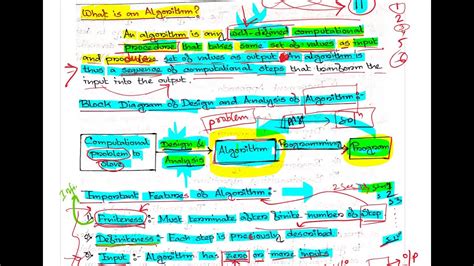 What is an Algorithm?
11
1
2
5
6
An algorithm is any well-defined computational
procedure that takes some set of values as input
and produces set of values as output. An algorithm is
thus a sequence of computational steps that transform the
input into the output.
Block Diagram of Design and Analysis of Algorithm:-
problem
Computational problem to
Design & Analysis
Algorithm
Programming
Program
Important Features of Algorithm:-
1) Finiteness:- Must terminate after finite number of step
2) Definiteness:- Each step is precisely described
3) Input:- Algorithm has zero or more inputs
o/p